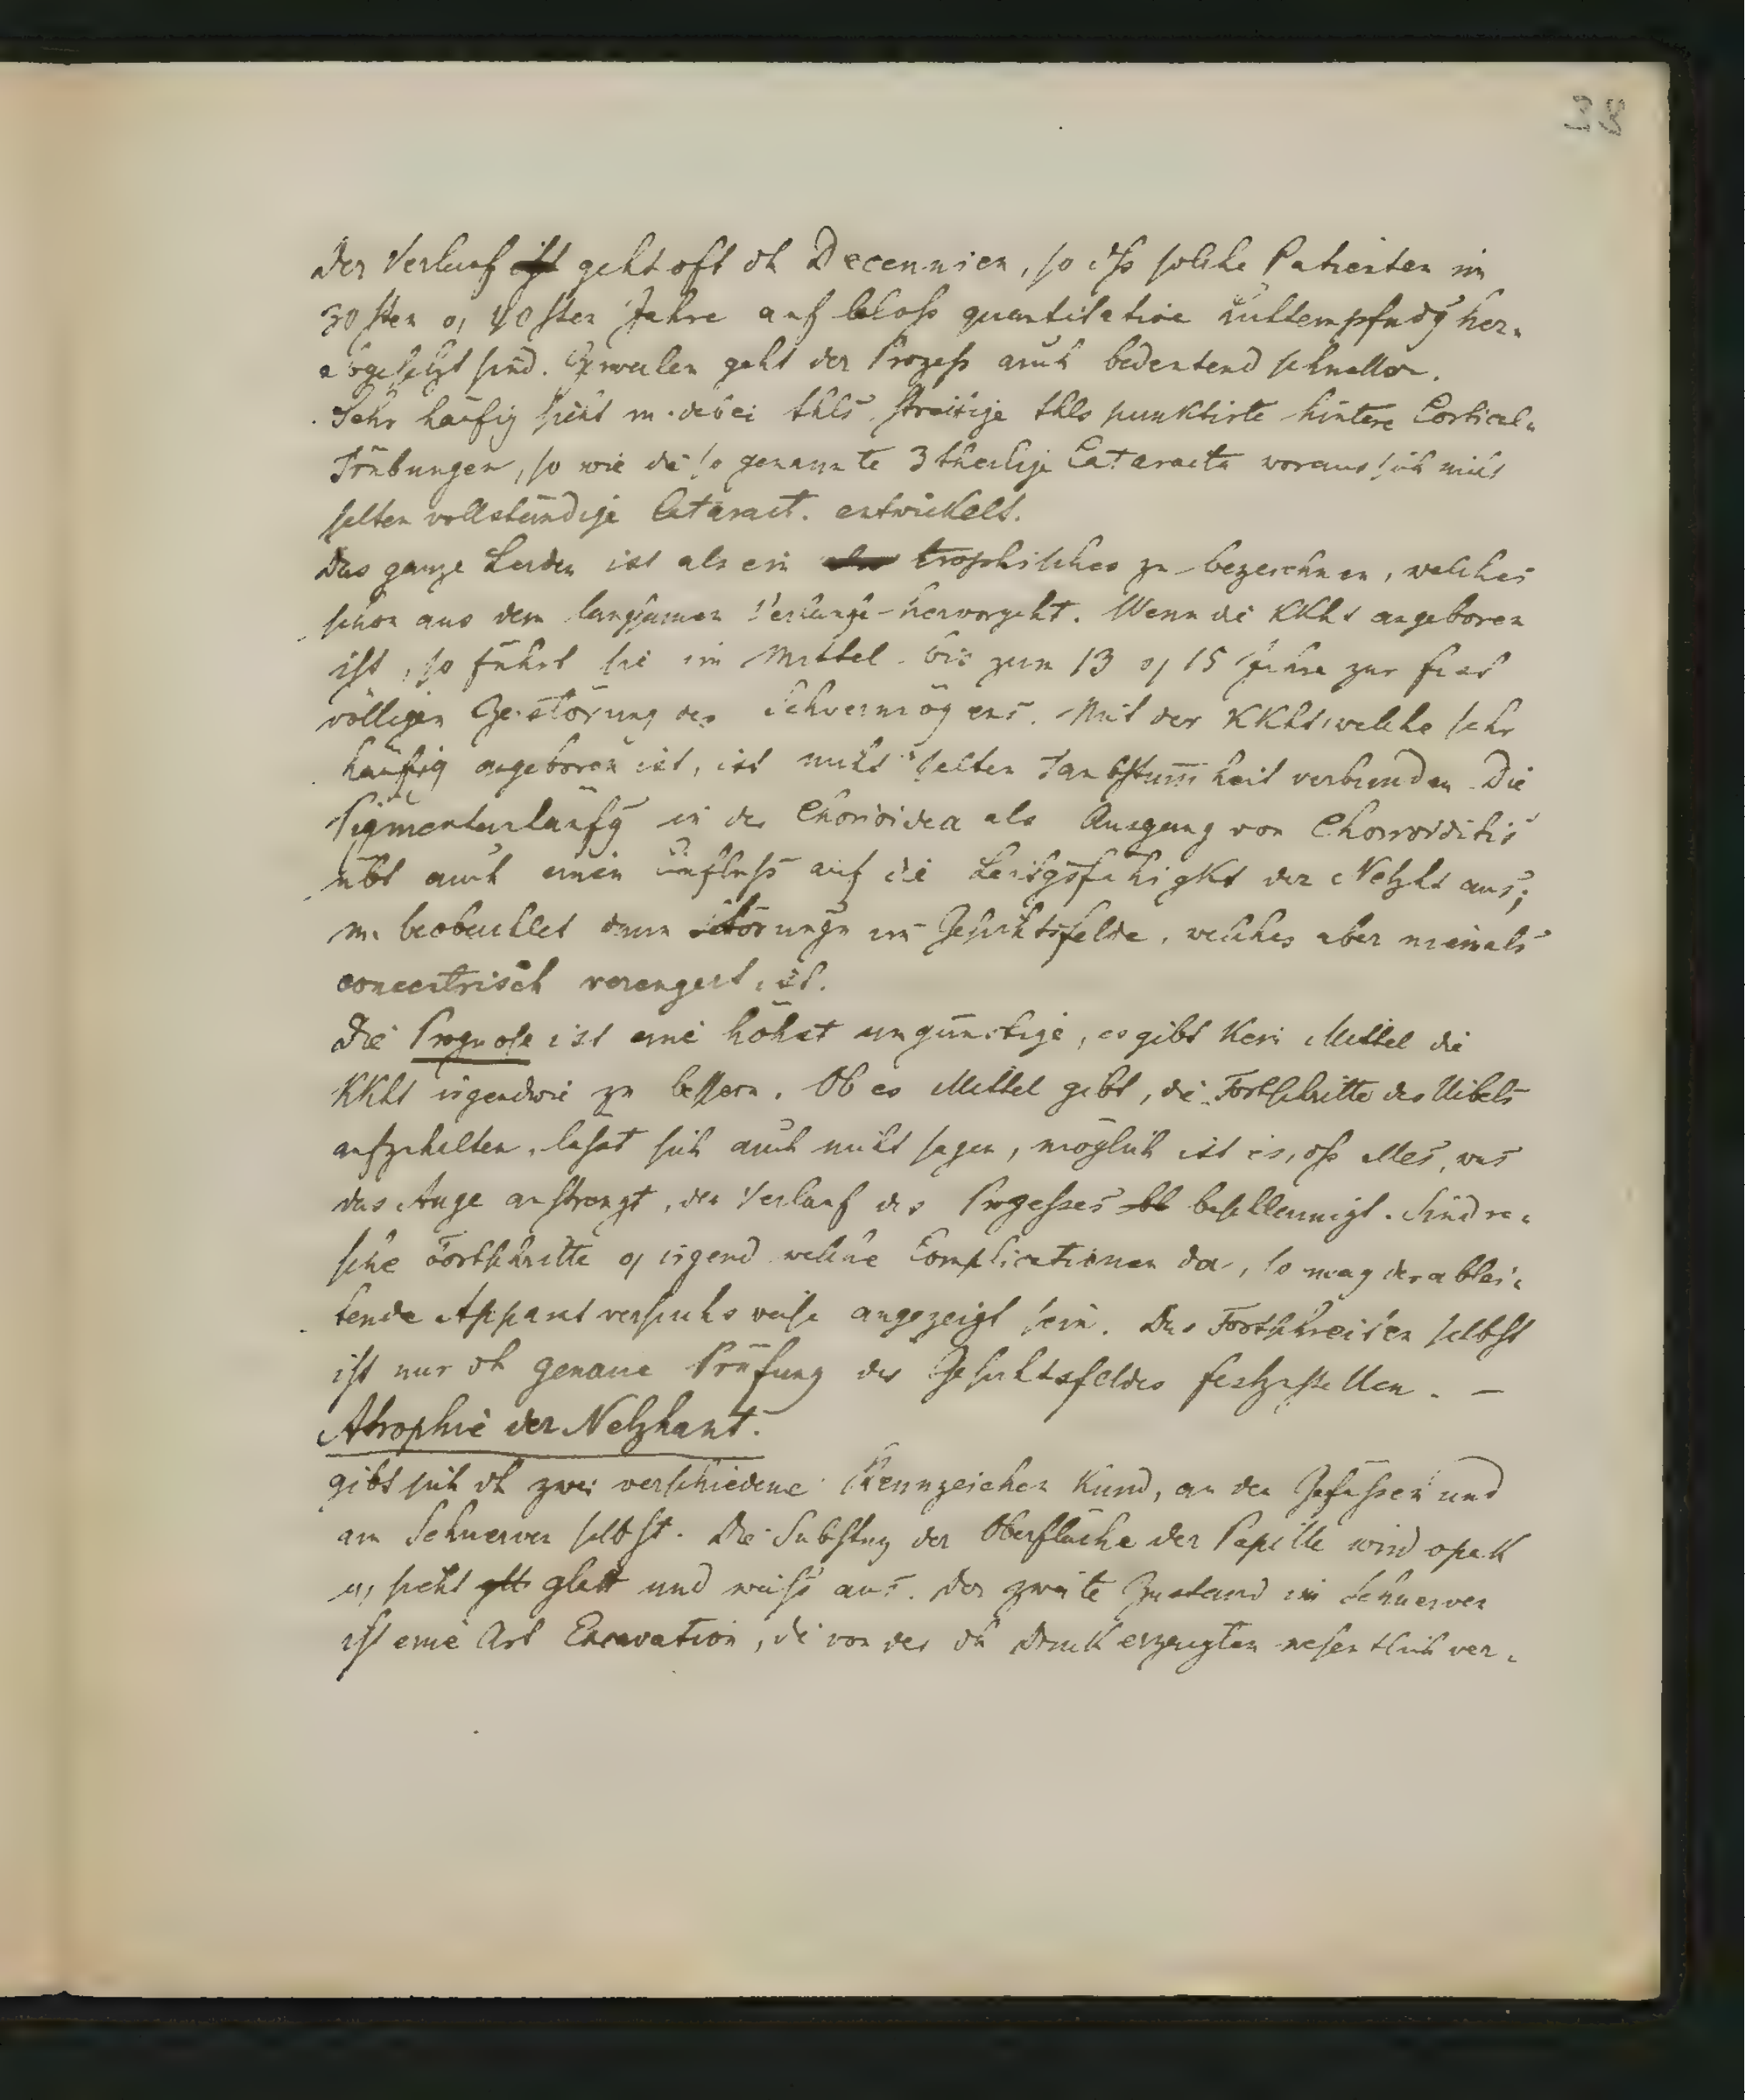 38
Der Verlauf ist geht oft dh Decennien, so dß solche Patienten im
30sten o, 40sten Jahre auf bloß quantitative Lichtempfndg her-
abgesetzt sind. Zuweilen geht der Prozeß auch bedeutend schneller.
Sehr häufig sieht m. dabei thls streifige thls punktirte hintere Cortical-
Trübungen, so wie die so genannte 3theilige Cataracta woraus sich nicht
selten vollständige Cataract. entwickelt.
Das ganze Leiden ist als ein trophisches zu bezeichnen, welches
schon aus dem langsamen Verlaufe hervorgeht. Wenn die KKht angeboren
ist, so führt sie im Mittel bis zum 13 o, 15 Jahre zur fast
völligen Zerstörung des Sehvermögens. Mit der KKht, welche sehr
häufig angeboren ist, ist nicht selten Taubstum̄heit verbunden. Die
Pigmentanhäufg in der Chorioidea als Ausgang von Chorioiditis
übt auch einen Einfluß auf die Leitgsfähigkt der Netzht aus;
m. beobachtet dann Störungn im Gesichtsfelde, welches aber niemals
concentrisch verengert ist.
Die Prognose ist eine höhst ungünstige, es gibt kein Mittel die
KKht irgendwie zu bessern. Ob es Mittel gibt, die Fortschritte des Uibels
aufzuhalten, laßt sich auch nicht sagen, möglich ist es, dß alles, was
das Auge anstrengt, den Verlauf des Prozeßes bl beschleunigt. Sind ra-
sche Fortschritte o, irgend welche Complicationen da, so mag der ablei-
tende Apparat versuchsweise angezeigt sein. Das Fortschreiten selbst
ist nur dh genaue Prüfung des Gesichtsfeldes festzustellen. —
Atrophie der Netzhaut.
gibt sich dh zwei verschiedene Kennzeichen kund, an den Gefäßen und
am Sehnerven selbst. Die Substnz der Oberfläche der Papille wird opak
u, sieht glt glatt und weiß aus. Der zweite Zustand im Sehnerven
ist eine Art Excavation, die von der dh Druck erzeugten wesentlich ver-